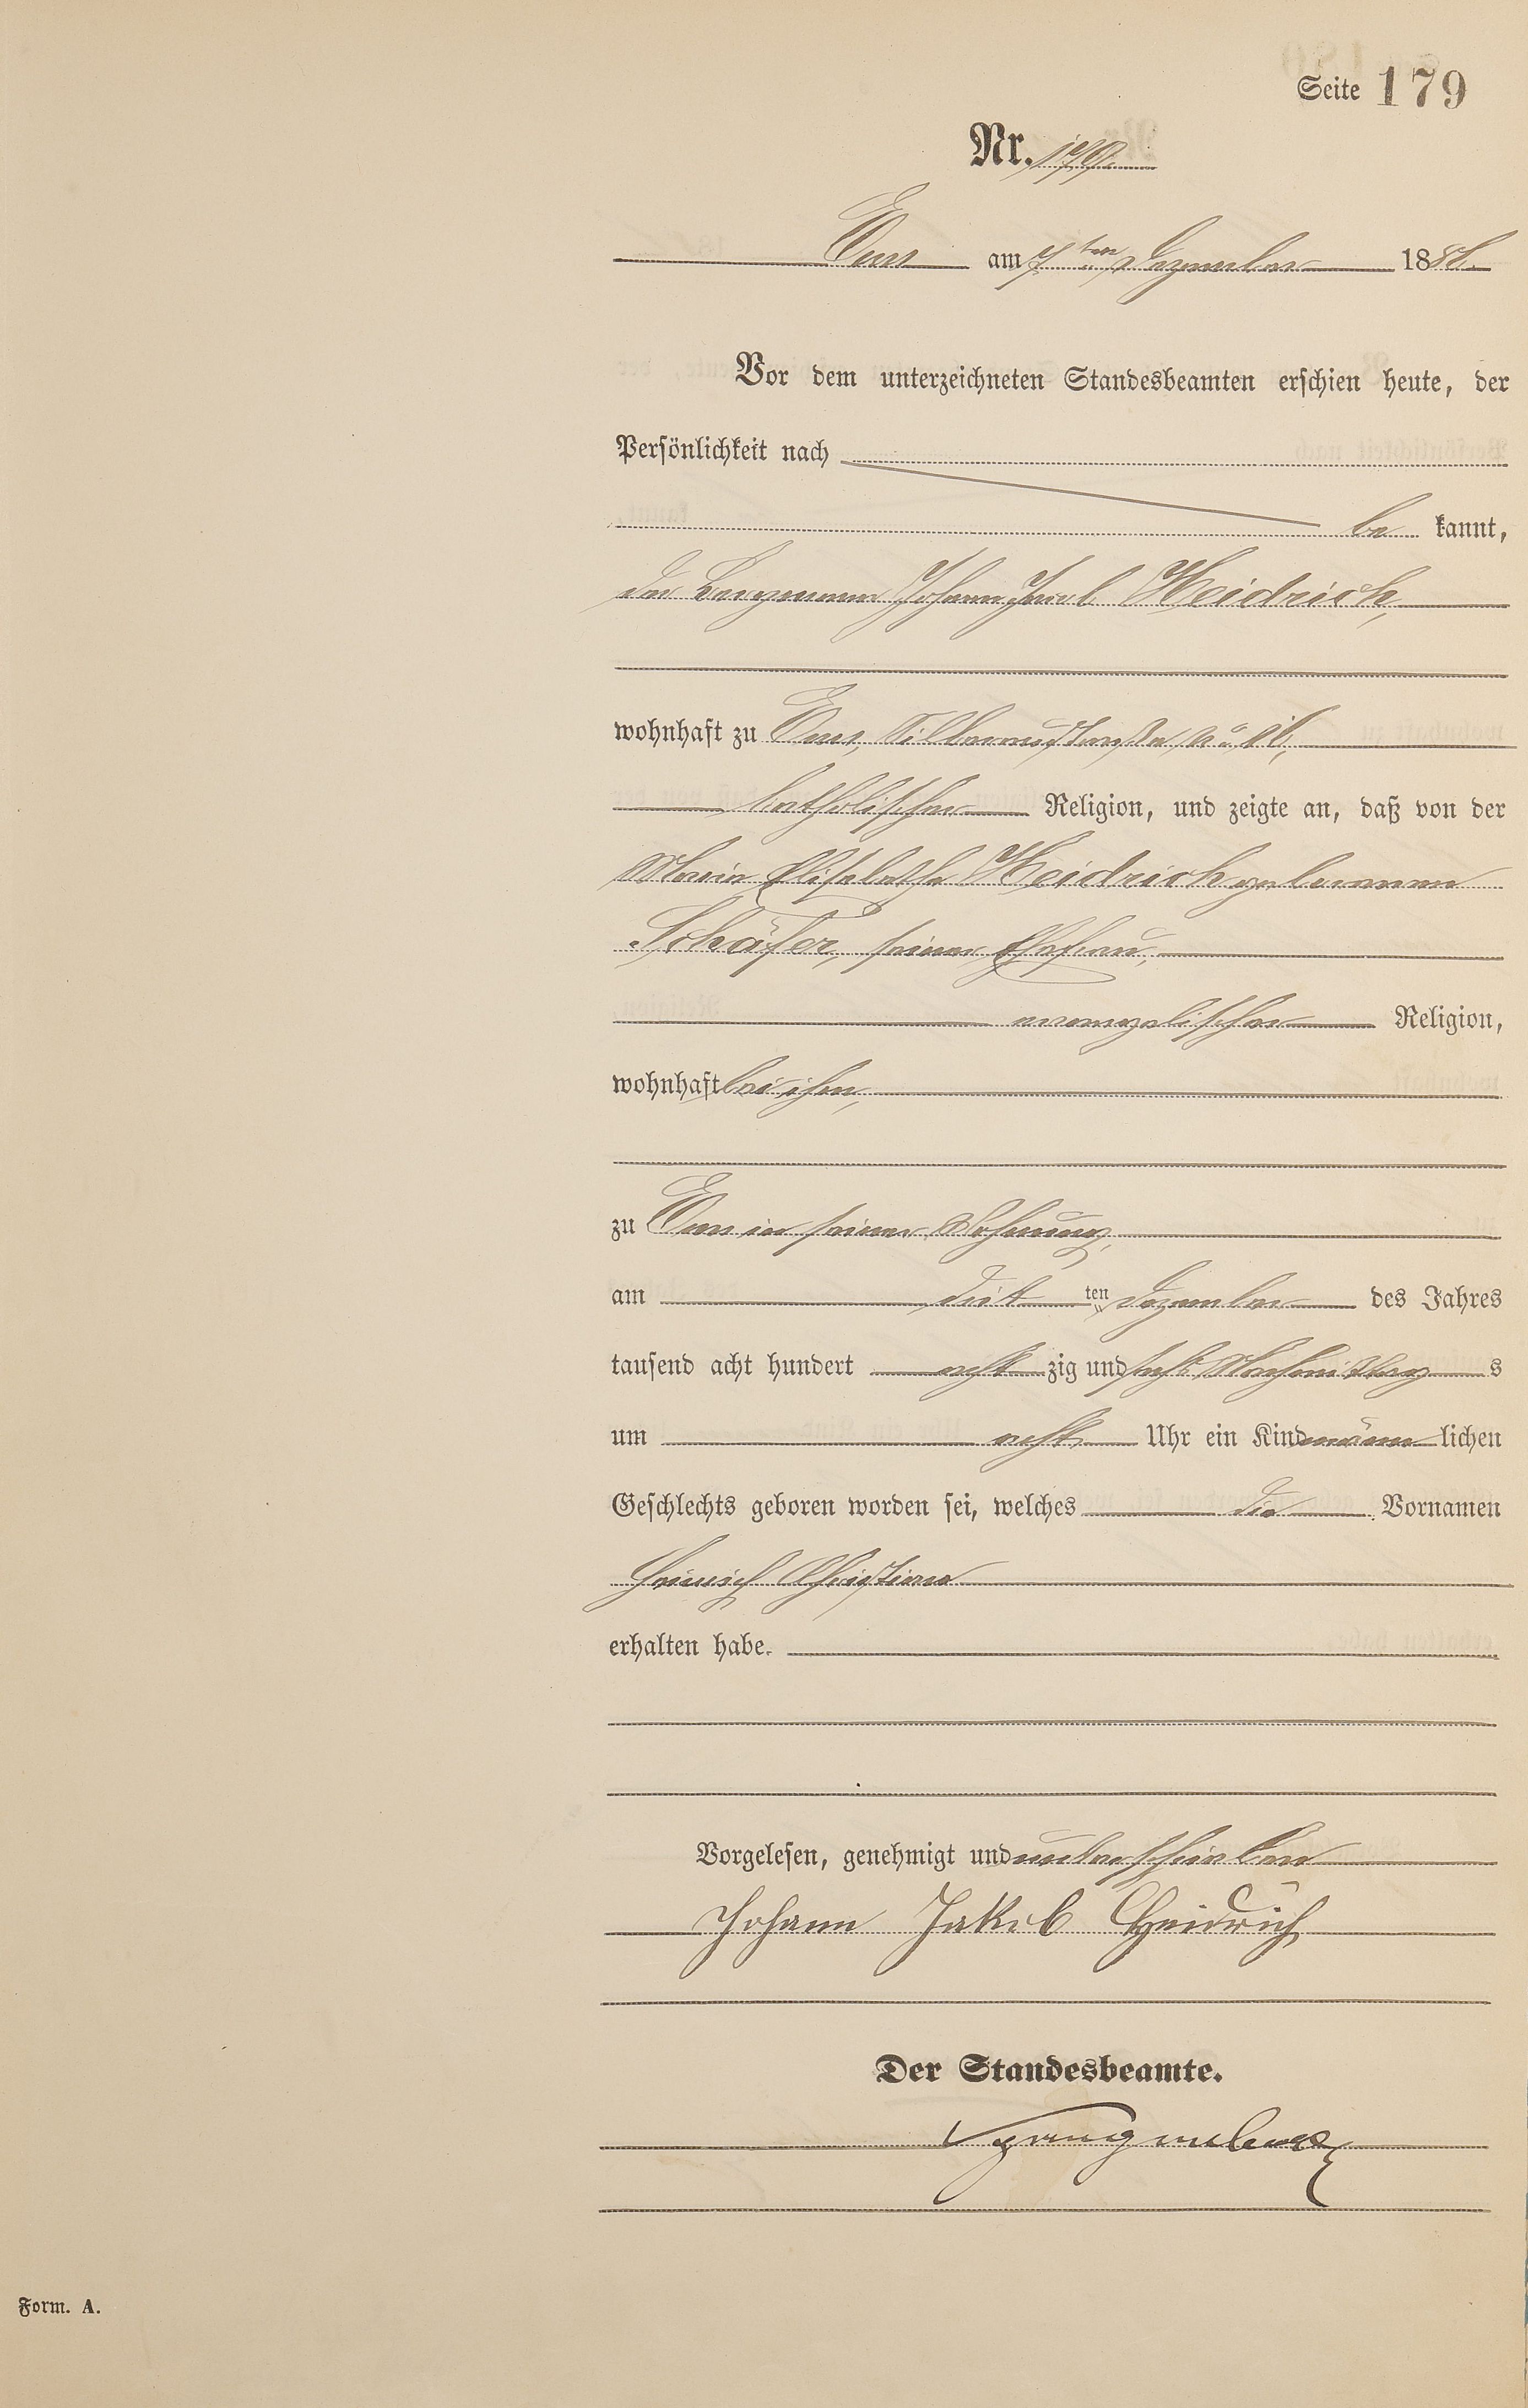 Seite 179
Nr. 179.
Ems am 7ten Dezember 1886.
Vor dem unterzeichneten Standesbeamten erschien heute, der
Persönlichkeit nach
be kannt,
der Bergmann Johann Jacob Heidrich,
wohnhaft zu Ems, Silberaustraße
katholischer Religion, und zeigte an, daß von der
Maria Elisabetha Heidrich geborenen
Schäfer, seiner Ehefrau,
evangelischer Religion,
wohnhaft bei ihm,
zu Ems in seiner Wohnung,
am ten Dezember des Jahres
tausend acht hundert acht zig und sechs Nachmittag s
um acht Uhr ein Kind männ lichen
Geschlechts geboren worden sei, welches die Vornamen
Heinrich Christian
erhalten habe.
Vorgelesen, genehmigt und unterschrieben
Johann Jakob Heidrich
Der Standesbeamte.
Form. A.